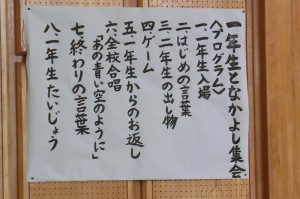 一年生となかよし集会
〈プログラム〉
一、一年生入場
二、はじめの言葉
三、二年生の出し物
四、ゲーム
五、一年生からのお返し
六、全校合唱
「あの青い空のように」
七、終わりの言葉
八、一年生たいじょう